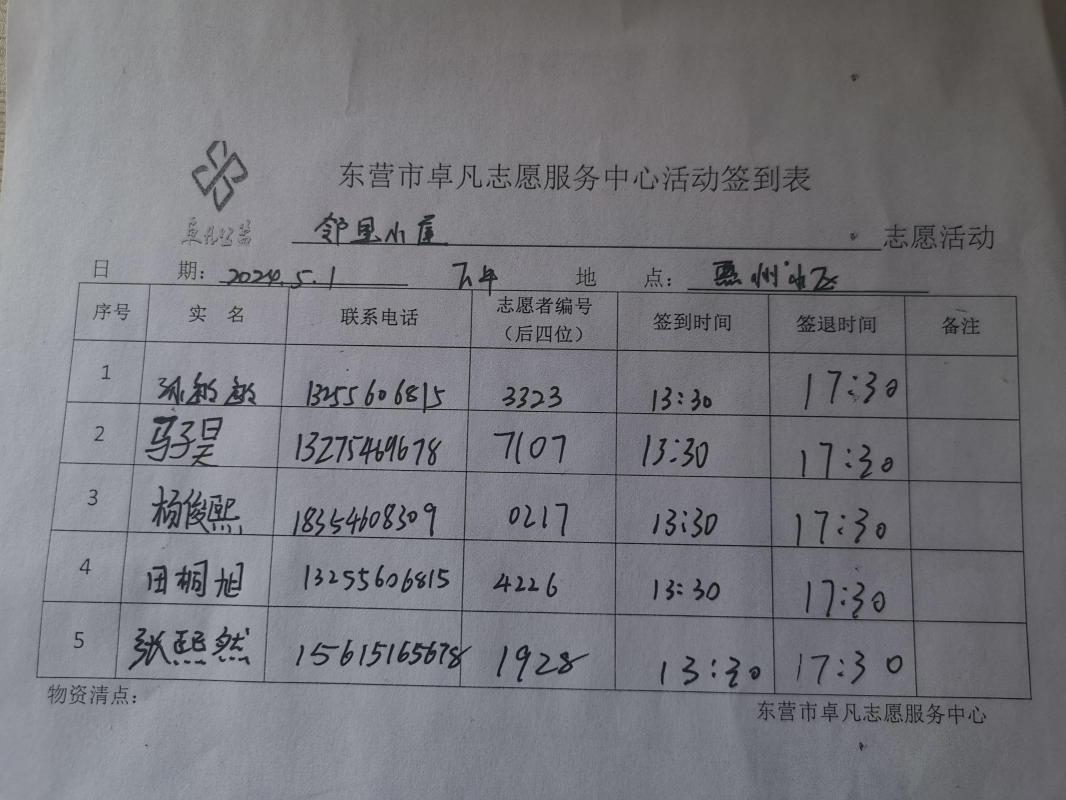 东营市卓凡志愿服务中心活动签到表
卓凡公益
邻里小屋 志愿活动
日 期: 2024.5.1 下午 地 点: 惠州
序号 实 名 联系电话 志愿者编号（后四位） 签到时间 签退时间 备注
1 孙敏敏 13255606815 3323 13:30 17:30
2 马子昊 13275469678 7107 13:30 17:30
3 杨俊熙 18354608309 0217 13:30 17:30
4 田桐旭 13255606815 4226 13:30 17:30
5 张熙然 15615165678 1928 13:30 17:30
物资清点：
东营市卓凡志愿服务中心